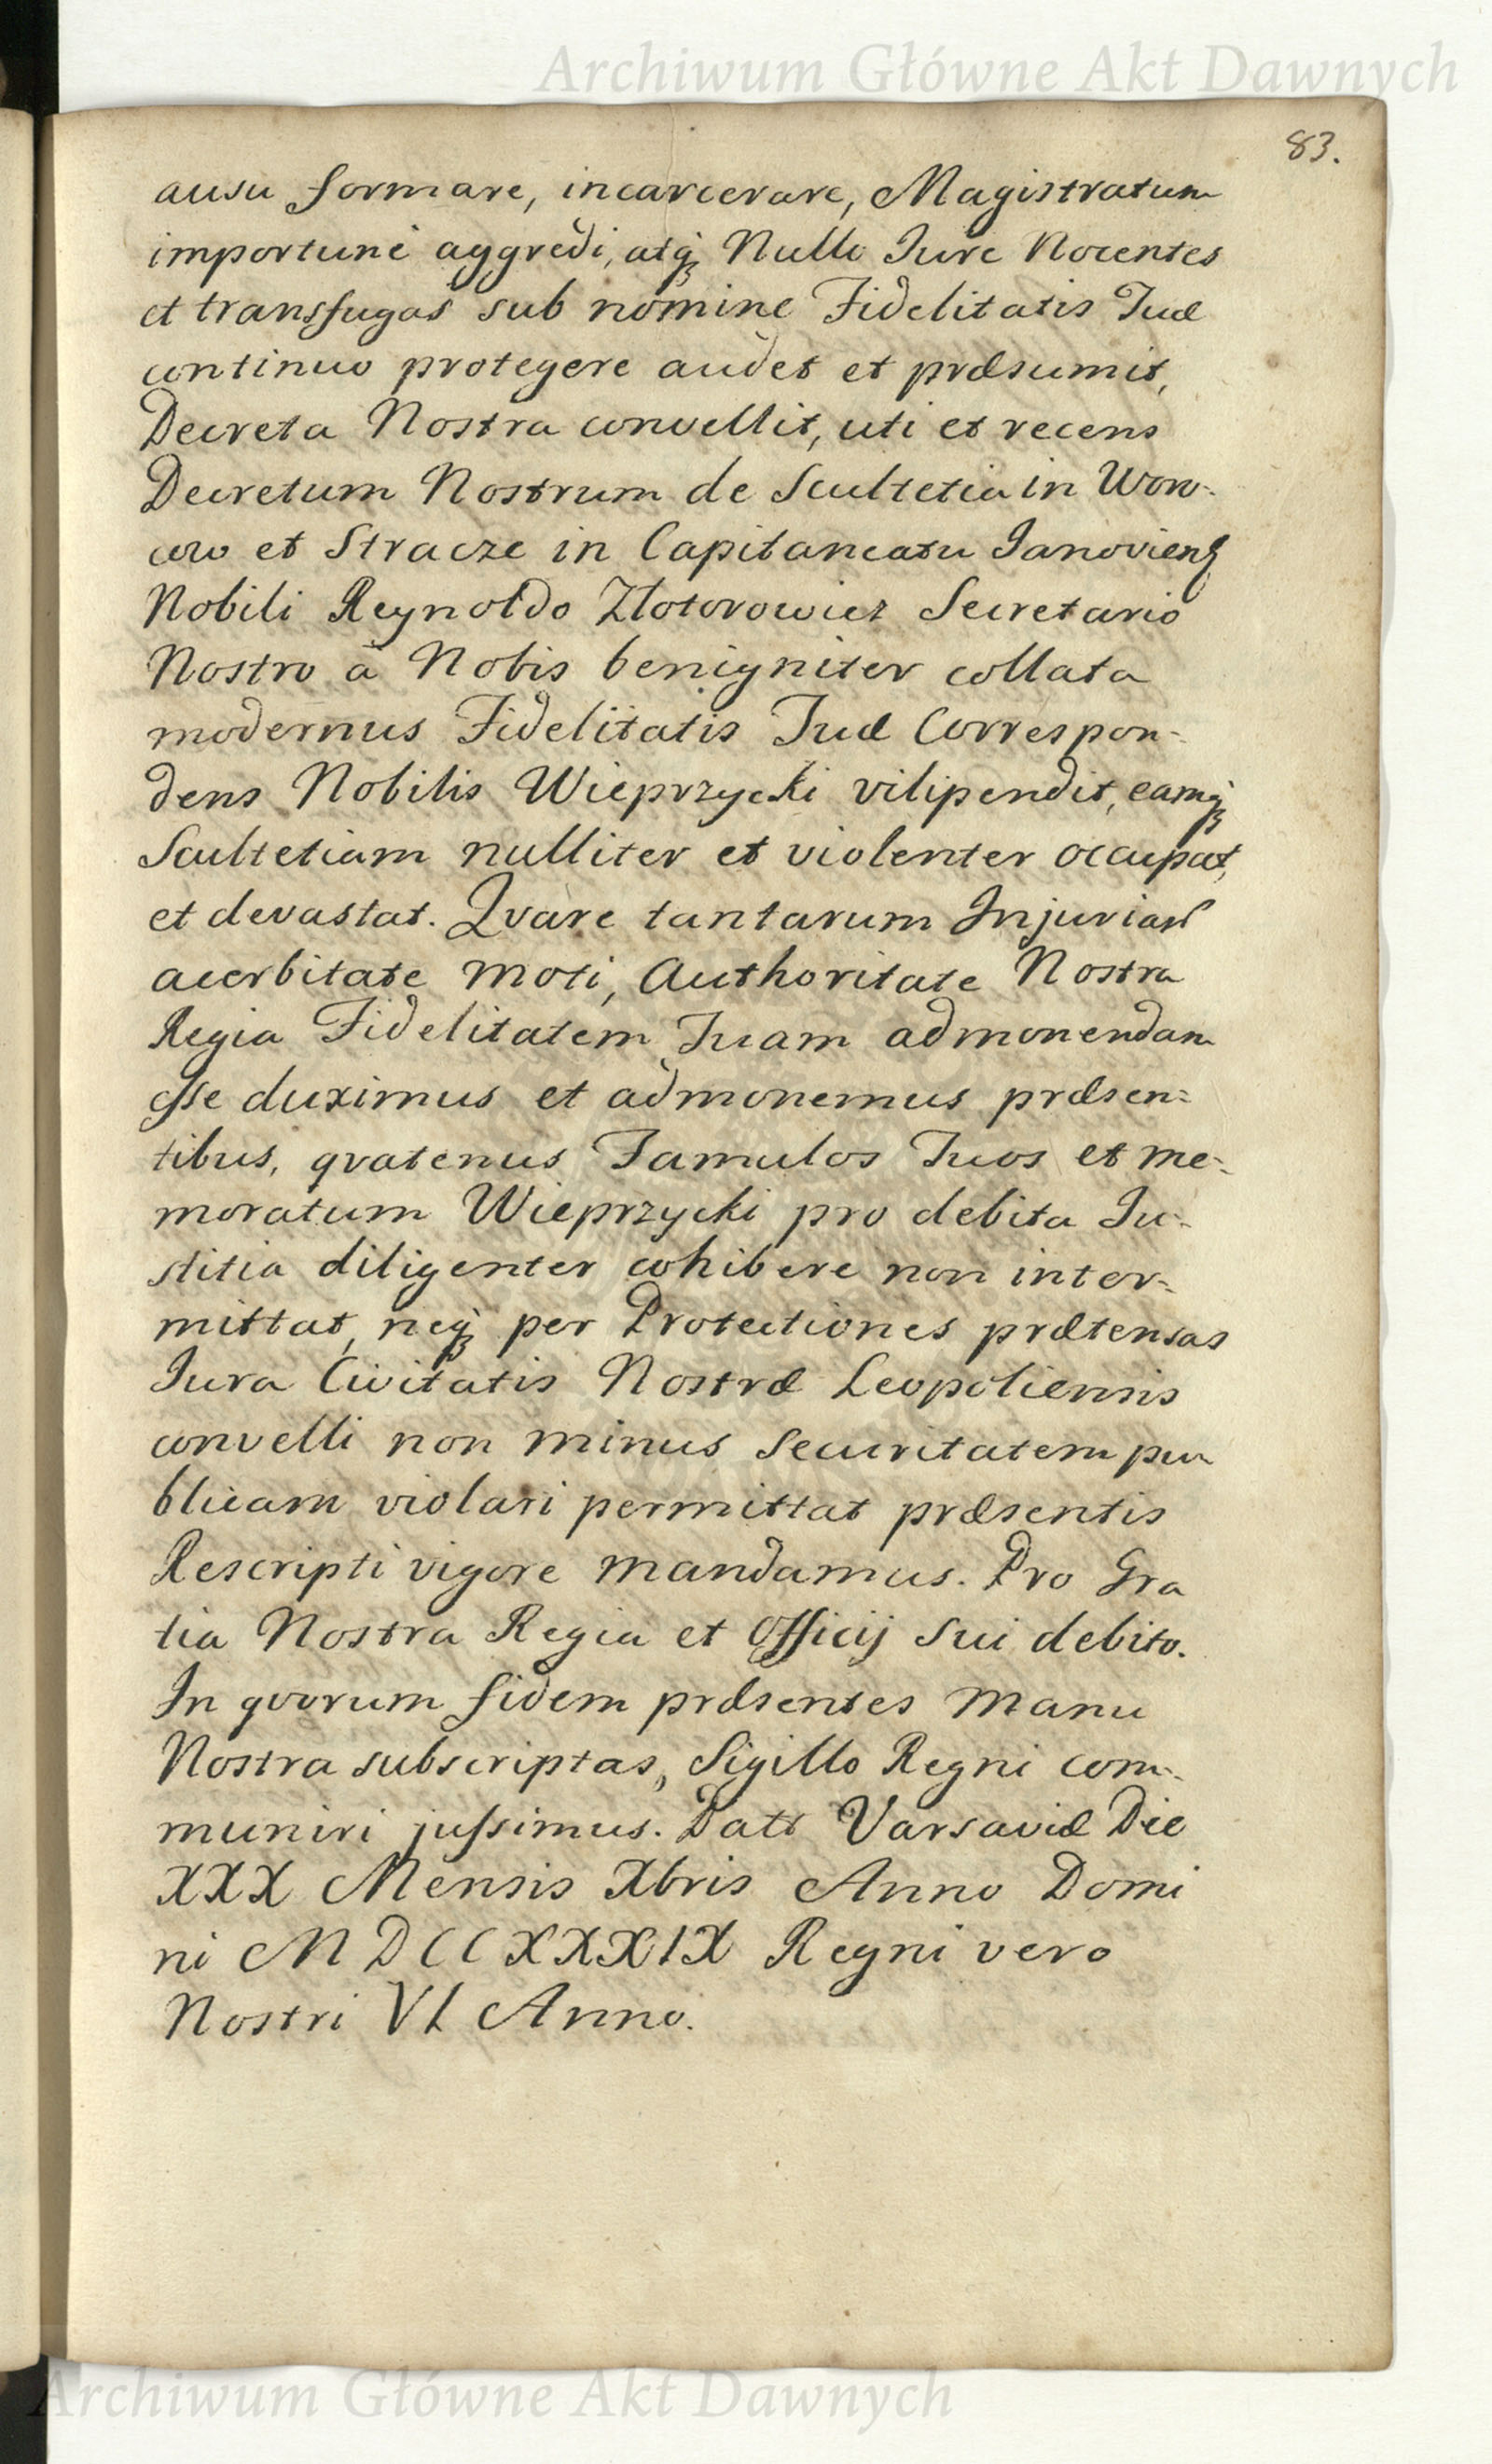 Archiwum Główne Akt Dawnych
83.
ausu formare, incarcerare, Magistratum
importunè aggredi, atq́; Nullo Jure Nocentes
et transfugas sub nomine Fidelitatis Tuæ
continuo protegere audet et præsumit,
Decreta Nostra convellit, uti et recens
Decretum Nostrum de Scultetia in Woro-
cow et Stracze in Capitaneatu Janoviens
Nobili Reynoldo Zlotorowicz Secretario
Nostro à Nobis benigniter collata
modernus Fidelitatis Tuæ Correspon-
dens Nobilis Wieprzycki vilipendit, eamq́;
Scultetiam nulliter et violenter occupat,
et devastat. Qvare tantarum Injuriar
acerbitate moti, Authoritate Nostra
Regia Fidelitatem Tuam admonendam
esse duximus et admonemus præsen-
tibus, qvatenus Famulos Tuos et me-
moratum Wieprzycki pro debita Ju-
stitia diligenter cohibere non inter-
mittat, neq́; per Protectiones prætensas
Jura Civitatis Nostræ Leopoliensis
convelli non minus securitatem pu
blicam violari permittat præsentis
Rescripti vigore mandamus. Pro Gra
tia Nostra Regia et Officij sui debito.
In qvorum fidem præsentes Manu
Nostra subscriptas, Sigillo Regni com-
muniri jussimus. Datt Varsaviæ Die
XXX Mensis Xbris Anno Domi
ni MDCCXXXIX Regni vero
Nostri VI Anno.
Archiwum Główne Akt Dawnych